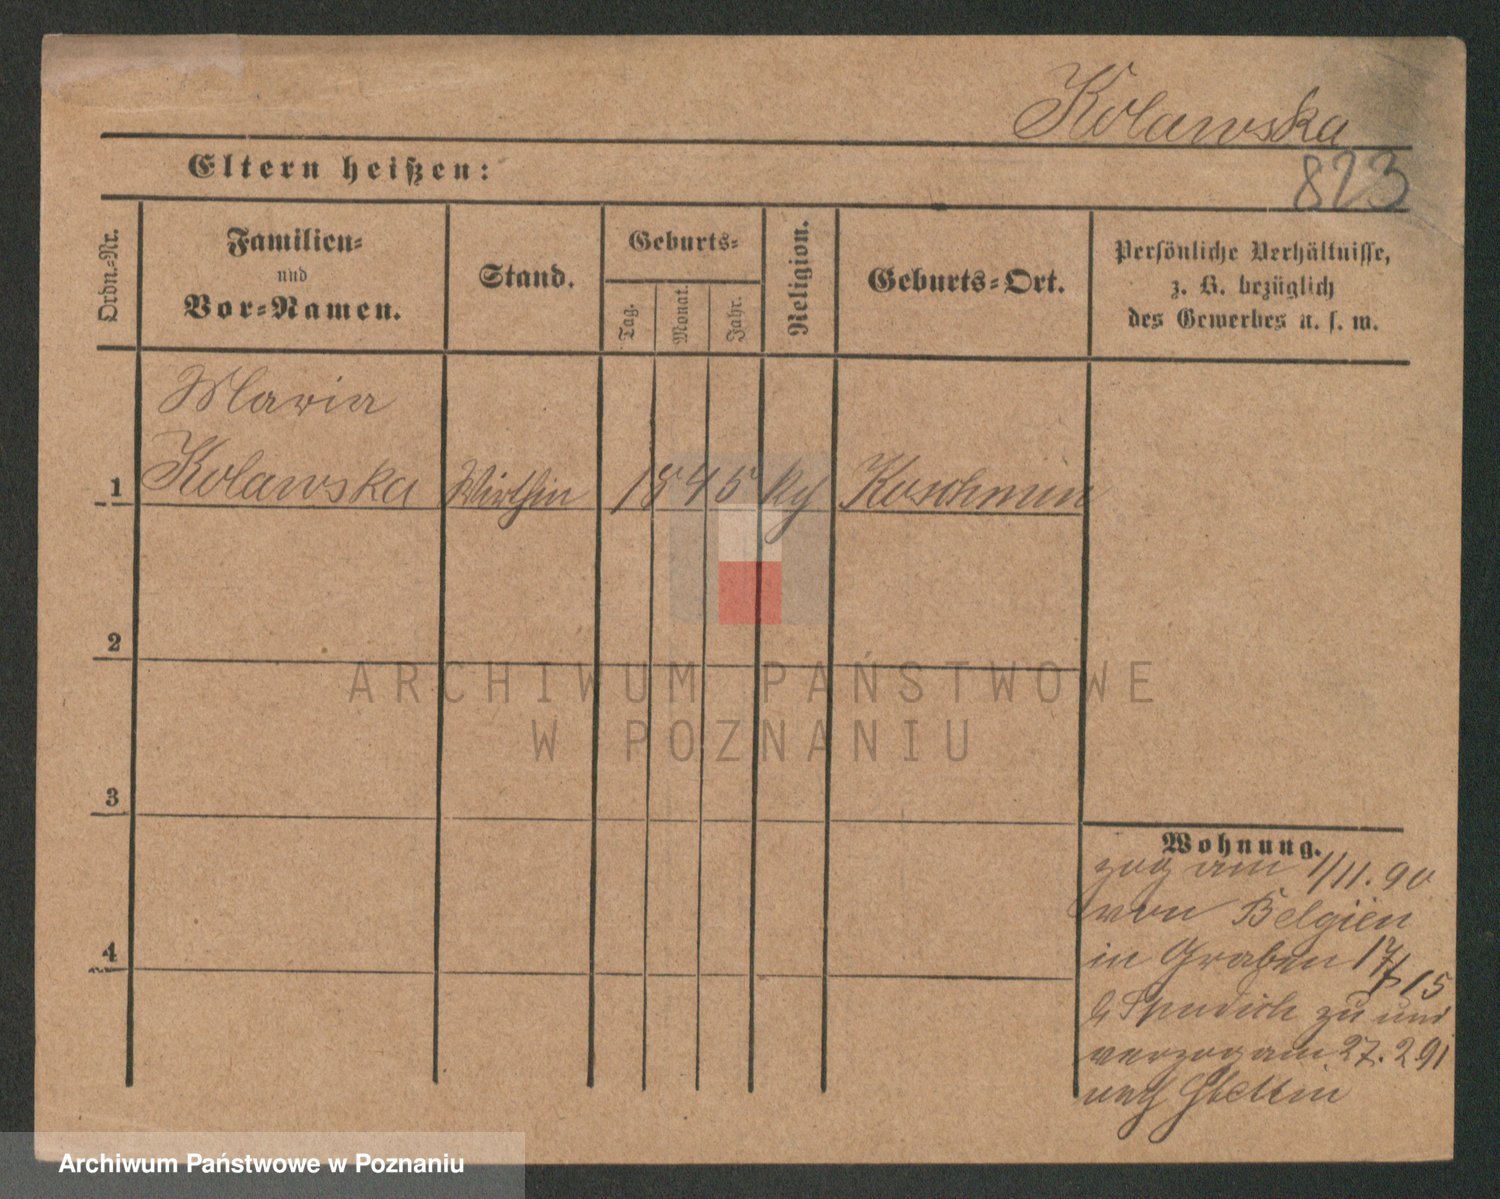 Kolawska
Eltern heißen:
823
Ordn.-Nr.
Familien-
und
Vor-Namen.
Stand.
Geburts-
Tag.
Monat.
Jahr.
Religion.
Geburts-Ort.
Persönliche Verhältnisse,
z. B. bezüglich
des Gewerbes u. s. w.
Maria
1 Kolawska Wirthin 1845 Koschmin
2
ARCHIWUM PAŃSTWOWE
W POZNANIU
3
Wohnung.
zog am 1/11. 90
von Belgien
in Graben 17/ 15
zu und
verzog am 27. 2 91
nach Stettin
4
Archiwum Państwowe w Poznaniu